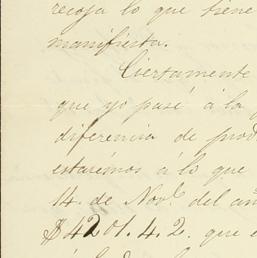 recoja lo que tiene
manifiesta.
Ciertamente
que yo pasé á la
diferencia de prod
estarémos á lo que
14. de Nov.e del añ
$4201.4.2. que e